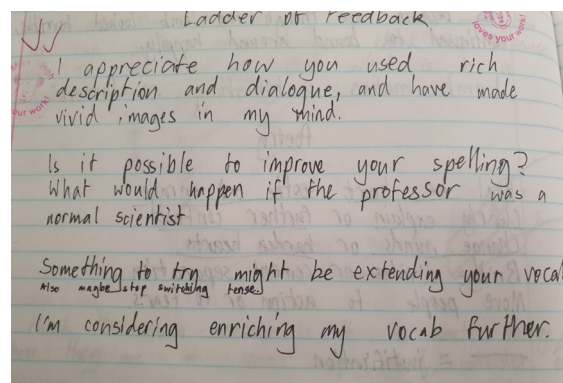 Ladder of Feedback
loves your work!
I appreciate how you used rich
description and dialogue, and have made
vivid images in my mind.
Is it possible to improve your spelling?
What would happen if the professor was a
normal scientist
Something to try might be extending your vocab
Also maybe stop switching tense.
I'm considering enriching my vocab further.